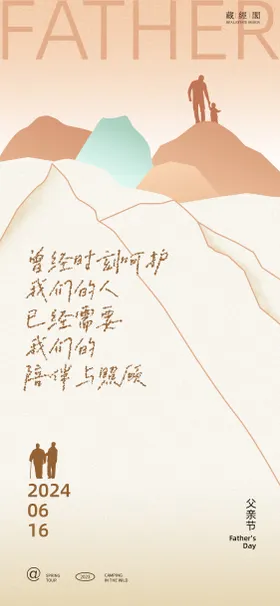 FATHER
藏經閣
曾经时刻呵护
我们的人
已经需要
我们的
陪伴与照顾
2024
06
16
父亲节
Father's
Day
@
SPRING
TOUR
2023
CAMPING
IN THE WILD